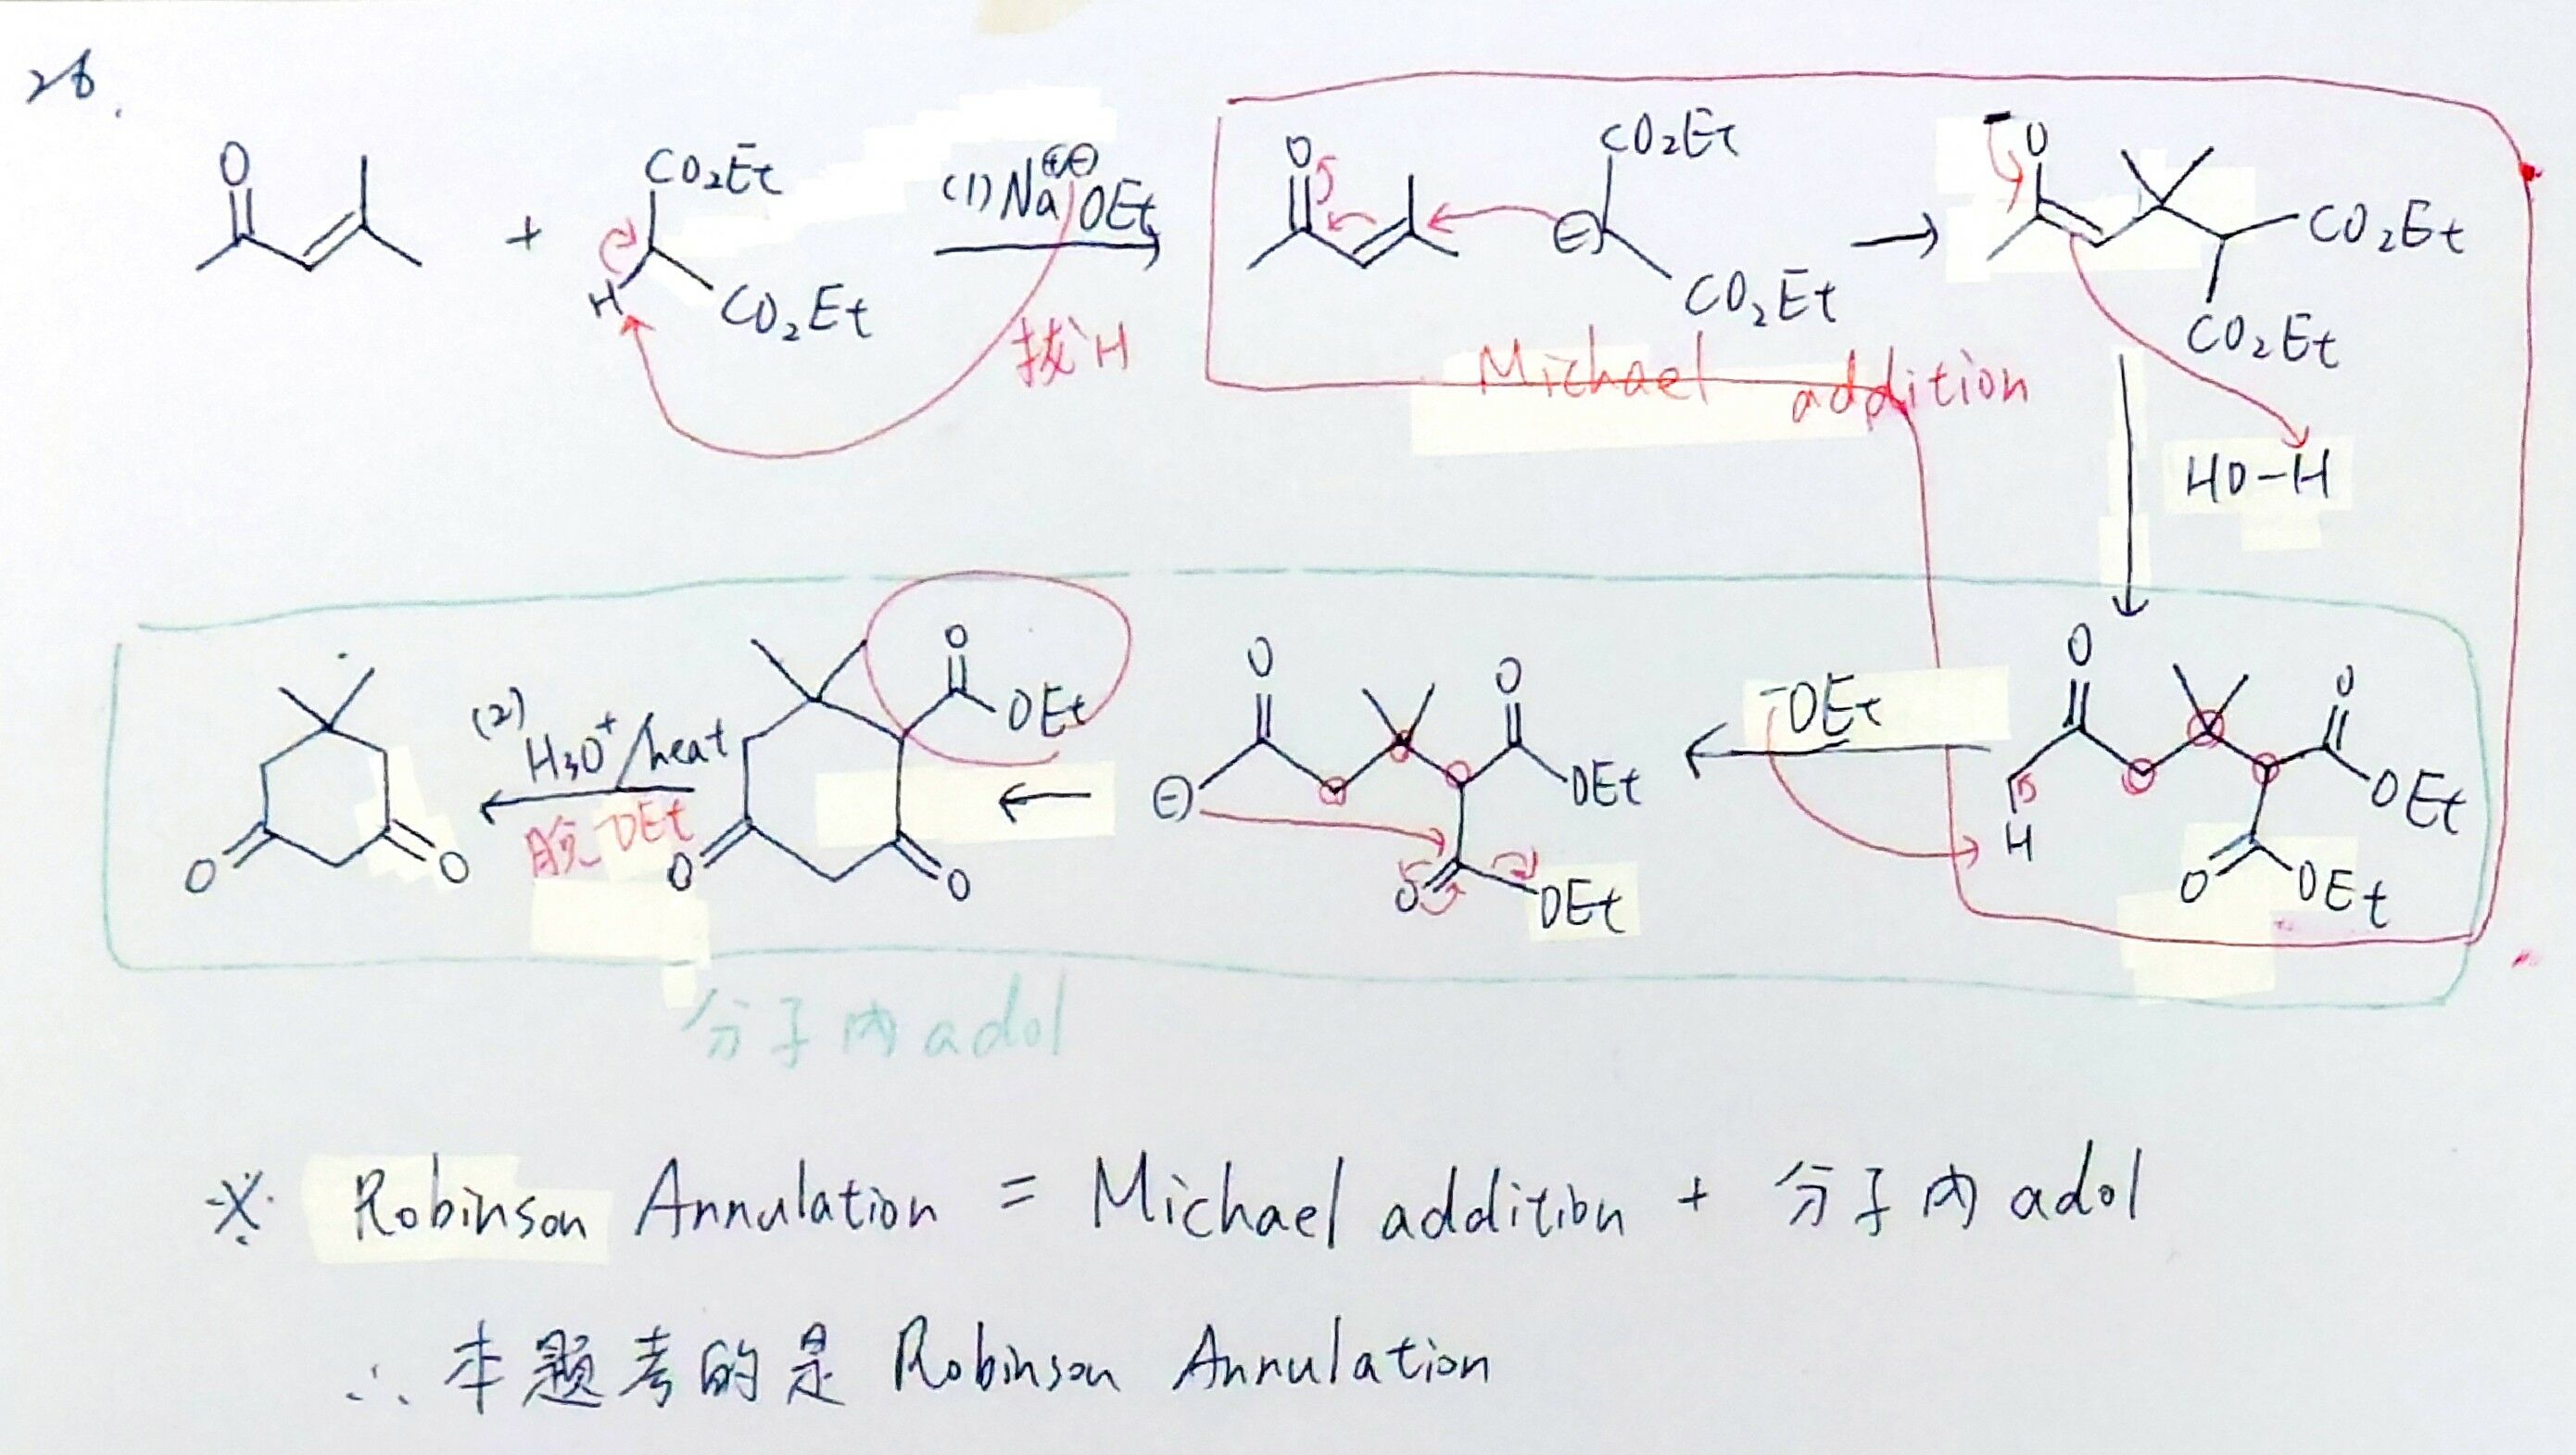 26.
O
CO₂Et
+
H
CO₂Et
(1) Na⊕⊖OEt
拔H
O
CO₂Et
⊖
CO₂Et
Michael addition
-O
CO₂Et
CO₂Et
HO-H
O
O
OEt
H
O
OEt
-OEt
O
O
OEt
⊖
O
OEt
O
OEt
O
O
(2) H₃O⁺/heat
脱 -OEt
O
O
分子內 adol
※ Robinson Annulation = Michael addition + 分子內 adol
∴ 本題考的是 Robinson Annulation